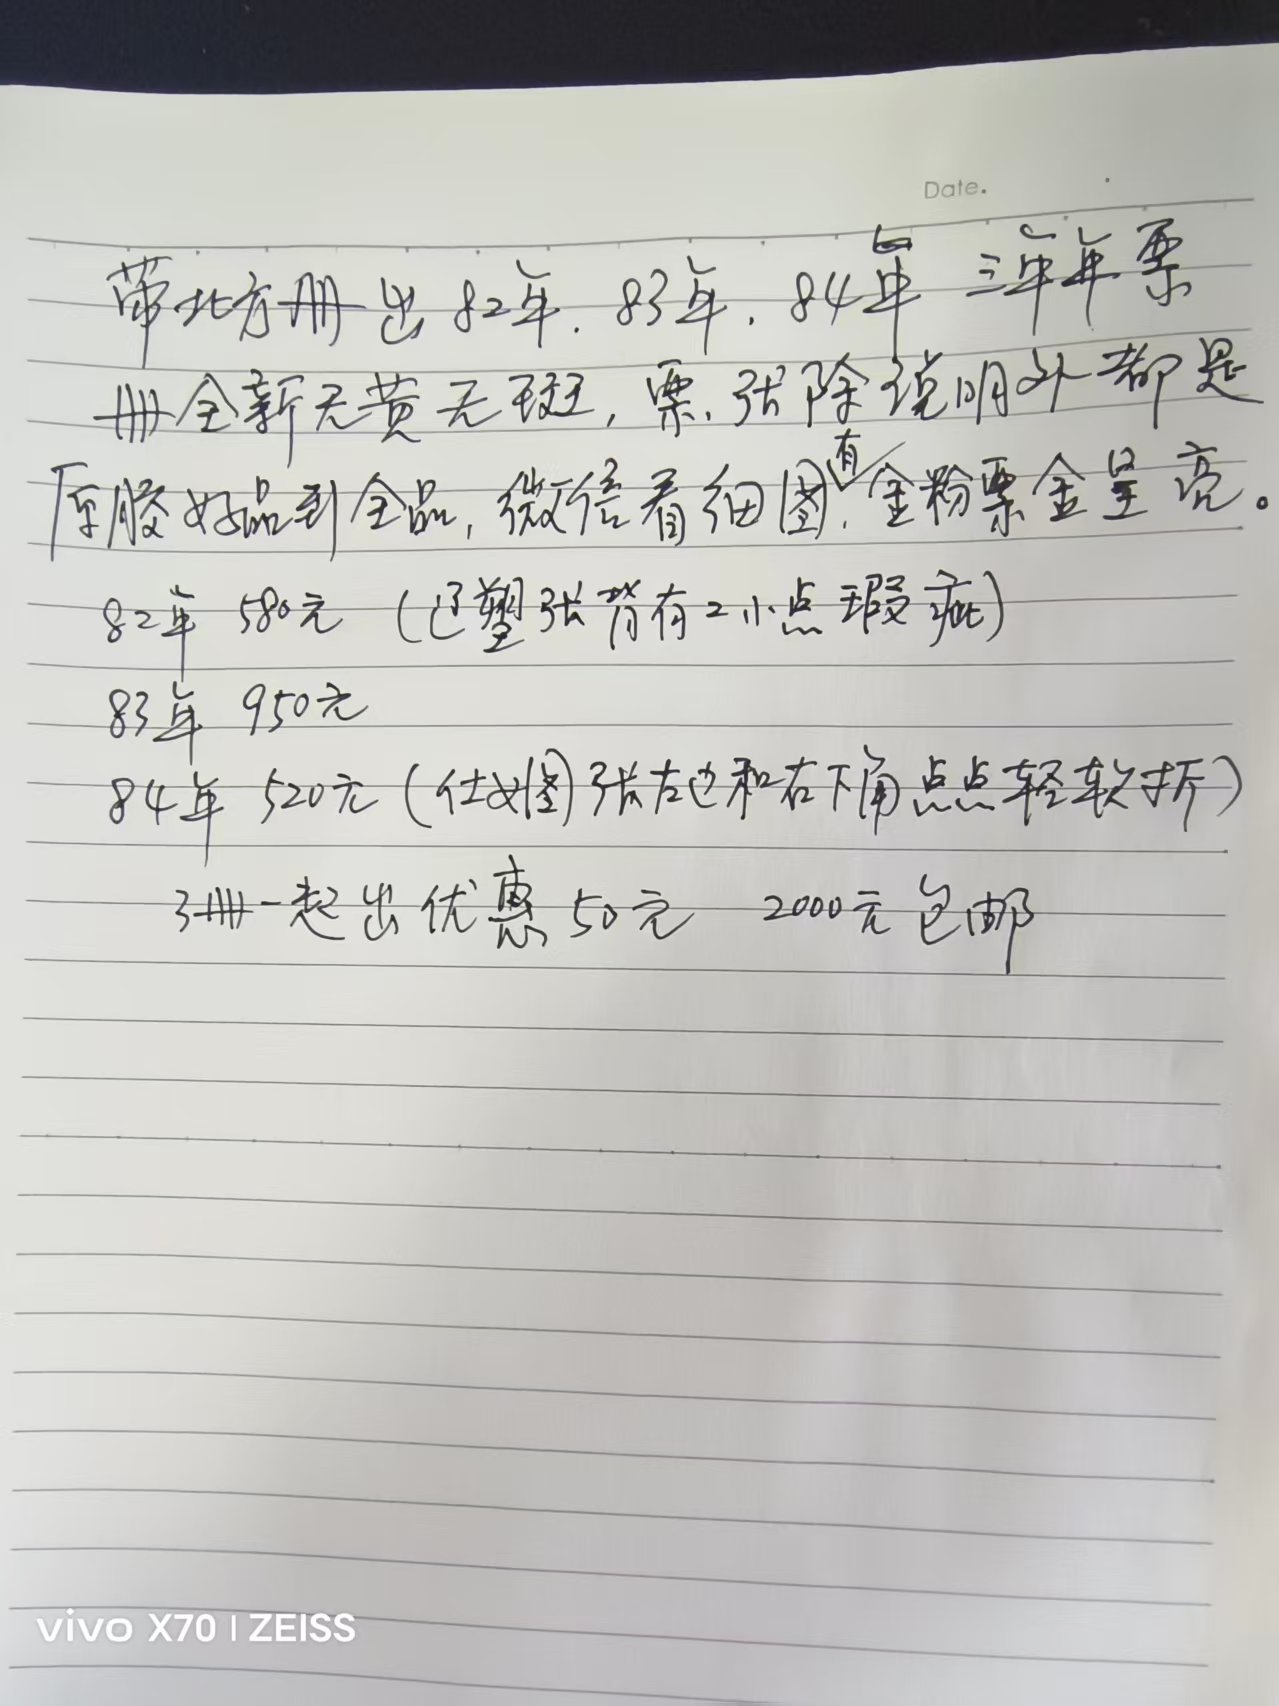 Date.
带北方册出82年.83年.84年 三年年票
册全新无黄无斑,票.张除说明外都是
原胶好品到全品,微信看细图.有金粉票金呈亮。
82年 580元 (辽塑张背有2小点瑕疵)
83年 950元
84年 520元 (仕女图张左边和右下角点点轻软折)
3册一起出优惠50元 2000元包邮
vivo X70 | ZEISS